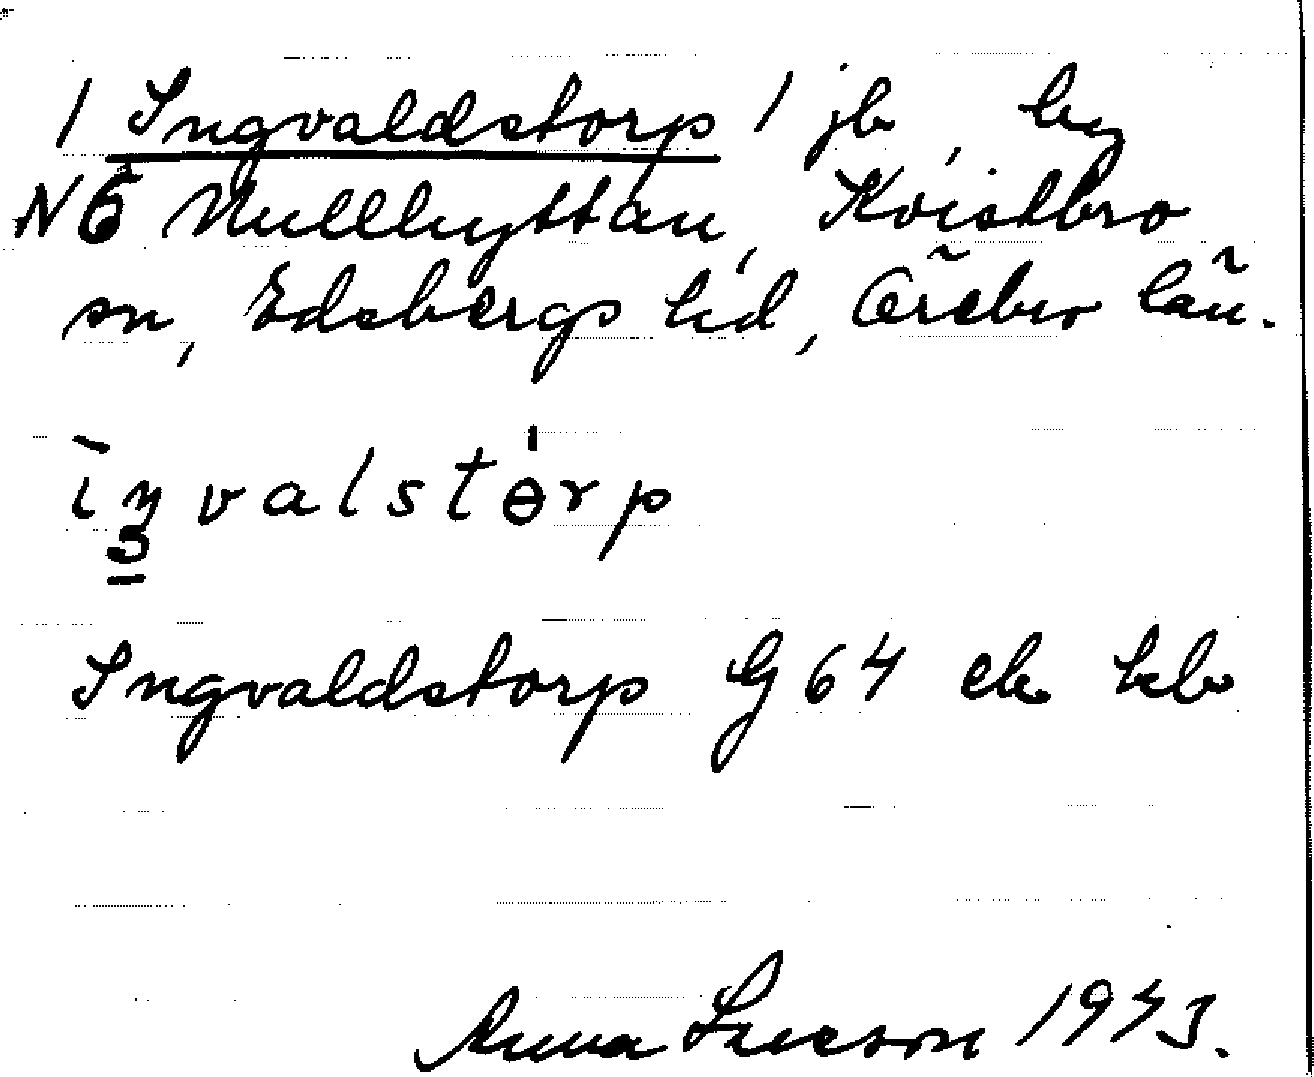 / Ingvaldstorp / jb by
NÖ Mullhyttan, Kvistbro
sn, Edsbergs hd, Örebro län.
ı̄ŋvalstɵ́rp
Ingvaldstorp G 64 ek kb
Anna 1943.